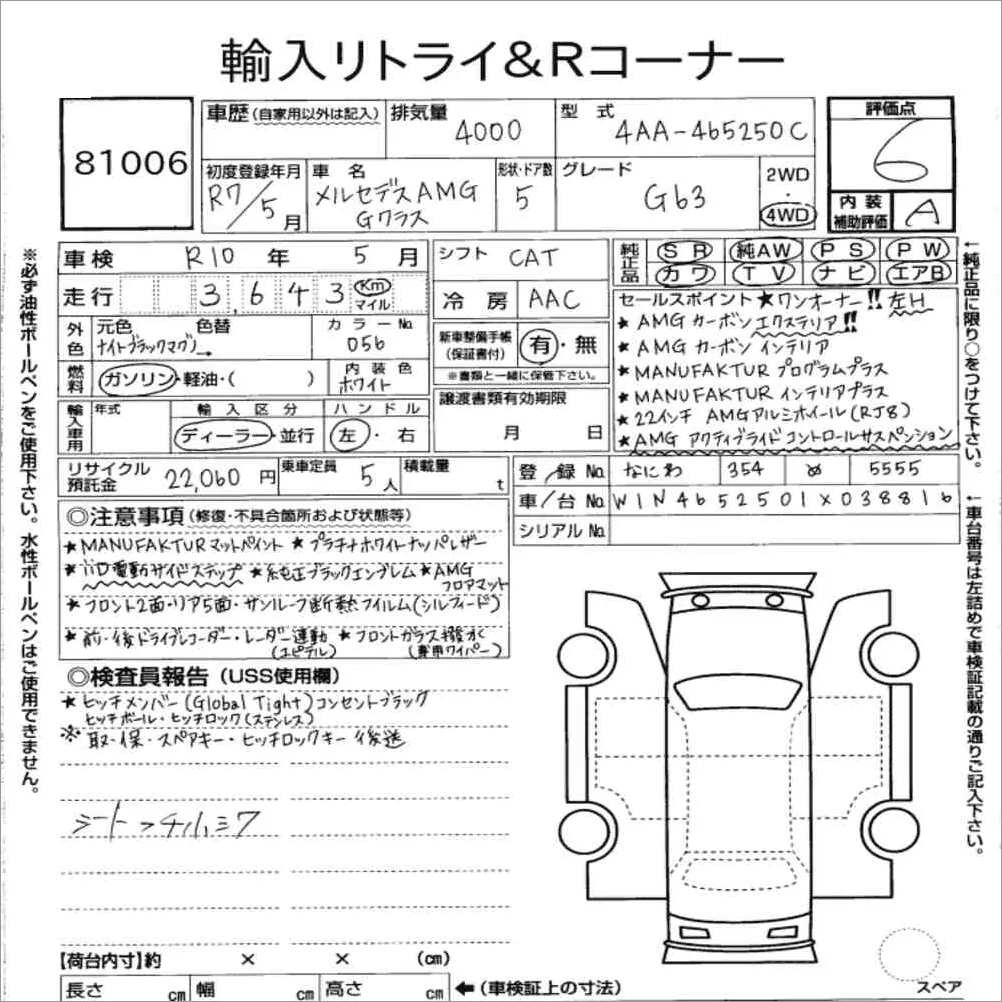 輸入リトライ&Rコーナー
81006
車歴 (自家用以外は記入)
排気量 4000
型式 4AA-465250C
評価点 6
初度登録年月 R7/5月
車名 メルセデスAMG Gクラス
形状・ドア数 5
グレード G63
2WD・4WD
内装補助評価 A
車検 R10年 5月
シフト CAT
純正品 SR 純AW PS PW
カワ TV ナビ エアB
走行 3,643 Km マイル
冷房 AAC
セールスポイント ★ワンオーナー!! 左H
★ AMG カーボン エクステリア!!
★ AMG カーボン インテリア
★ MANUFAKTUR プログラムプラス
★ MANUFAKTUR インテリアプラス
★ 22インチ AMGアルミホイール(RJ8)
★ AMG アクティブライドコントロールサスペンション
外色 元色 色替 ナイトブラックマグノ
カラーNo. 056
新車整備手帳(保証書付) 有・無
※書類と一緒に保管下さい。
燃料 ガソリン・軽油・( )
内装色 ホワイト
譲渡書類有効期限
月 日
輸入車用 年式
輸入区分 ディーラー・並行
ハンドル 左・右
リサイクル預託金 22,060円
乗車定員 5人
積載量 t
登録No. なにわ 354 め 5555
車台No. W1N4652501X038816
シリアルNo.
◎注意事項 (修復・不具合箇所および状態等)
★MANUFAKTURマットペイント ★プラチナホワイトナッパレザー
電動サイドステップ ★純正ブラックエンブレム ★AMGフロアマット
★フロント2面・リア5面・サンルーフ断熱フイルム(シルフィード)
★前・後ドライブレコーダー・レーダー連動(ユピテル) ★フロントガラス撥水(専用ワイパー)
◎検査員報告 (USS使用欄)
★ヒッチメンバー(Global Tight)コンセントブラック
ヒッチボール・ヒッチロック(ステンレス)
※取・保・スペアキー・ヒッチロックキー後送
シート フチ小ミワ
【荷台内寸】約 × × (cm)
長さ cm 幅 cm 高さ cm ←(車検証上の寸法)
スペア
※必ず油性ボールペンをご使用下さい。水性ボールペンはご使用できません。
←純正品に限り○をつけて下さい。
←車台番号は左詰めで車検証記載の通りご記入下さい。